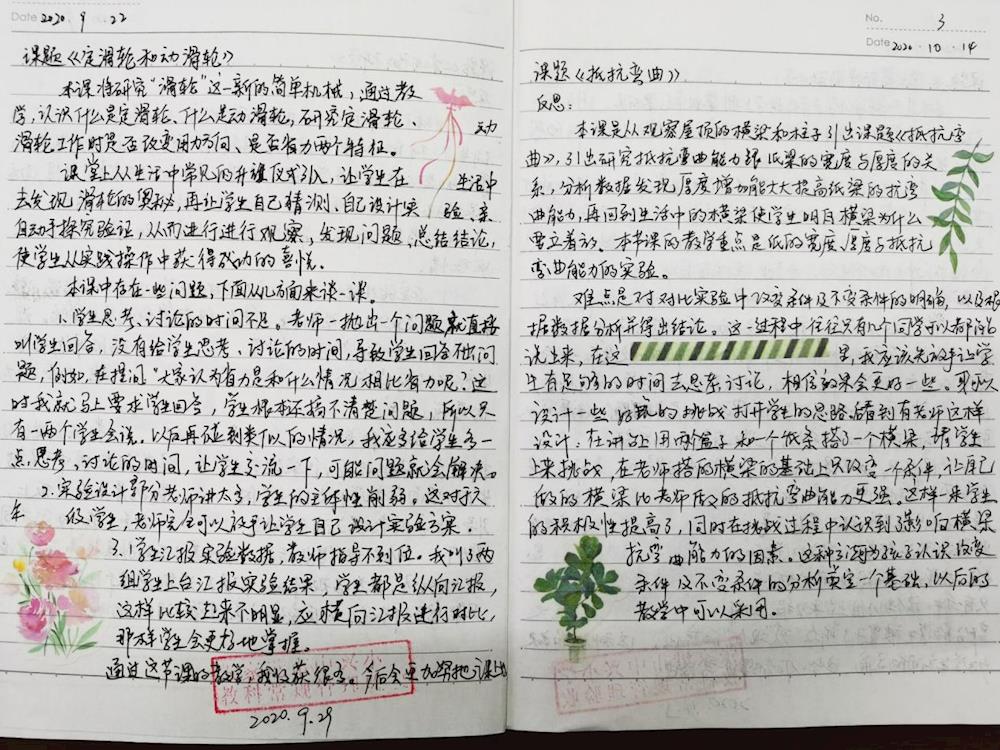 Date 2020 9 22
课题《定滑轮和动滑轮》
本课将研究“滑轮”这一新的简单机械，通过教
学，认识什么是定滑轮、什么是动滑轮，研究定滑轮、动
滑轮工作时是否改变用力方向、是否省力两个特征。
课堂上从生活中常见的升旗仪式引入，让学生在生活中
去发现滑轮的奥秘，再让学生自己猜测、自己设计实验、亲
自动手探究验证，从而进行进行观察，发现问题，总结结论，
使学生从实践操作中获得成功的喜悦。
本课中存在一些问题，下面从几方面来谈一谈。
1.学生思考、讨论的时间不足。老师一抛出一个问题就直接
叫学生回答，没有给学生思考、讨论的时间，导致学生回答不出问
题，例如，在提问“大家认为省力是和什么情况相比省力呢？这
时我就马上要求学生回答，学生根本还搞不清楚问题，所以只
有一两个学生会说。以后再碰到类似的情况，我应多给学生多一
点思考、讨论的时间，让学生交流一下，可能问题就会解决。
2.实验设计部分老师讲太多，学生的主体性削弱。这对于六
年级学生，老师完全可以放手让学生自己设计实验方案。
3.学生汇报实验数据，教师指导不到位。我叫了两
组学生上台汇报实验结果，学生都是纵向汇报，
这样比较起来不明显，应横向汇报进行对比，
那样学生会更好地掌握。
通过这节课的教学，我收获很多。今后会更加努力把课上
2020.9.29
No. 3
Date 2020.10.14
课题《抵抗弯曲》
反思：
本课是从观察屋顶的横梁和柱子引出课题《抵抗弯
曲》，引出研究抵抗弯曲能力跟纸梁的宽度与厚度的关
系，分析数据发现厚度增加能大大提高纸梁的抗弯
曲能力，再回到生活中的横梁使学生明白横梁为什么
要立着放。本节课的教学重点是纸的宽度、厚度与抵抗
弯曲能力的实验。
难点是对对比实验中改变条件及不变条件的明确，以及根
据数据分析并得出结论。这一过程中往往只有几个同学可以都的
说出来，在这里，我应该先放手让学
生有足够的时间去思索讨论，相信效果会更好一些。可以
设计一些好玩的挑战打开学生的思路，看到有老师这样
设计：在讲台上用两个盒子和一个纸条搭了一个横梁，请学生
上来挑战，在老师搭的横梁的基础上只改变一个条件，让自己
做的横梁比老师放的抵抗弯曲能力更强。这样一来学生
的积极性提高了，同时在挑战过程中认识到了影响横梁
抗弯曲能力的因素。这种方法为孩子认识改变
条件及不变条件的分析奠定一个基础，以后的
教学中可以采用。